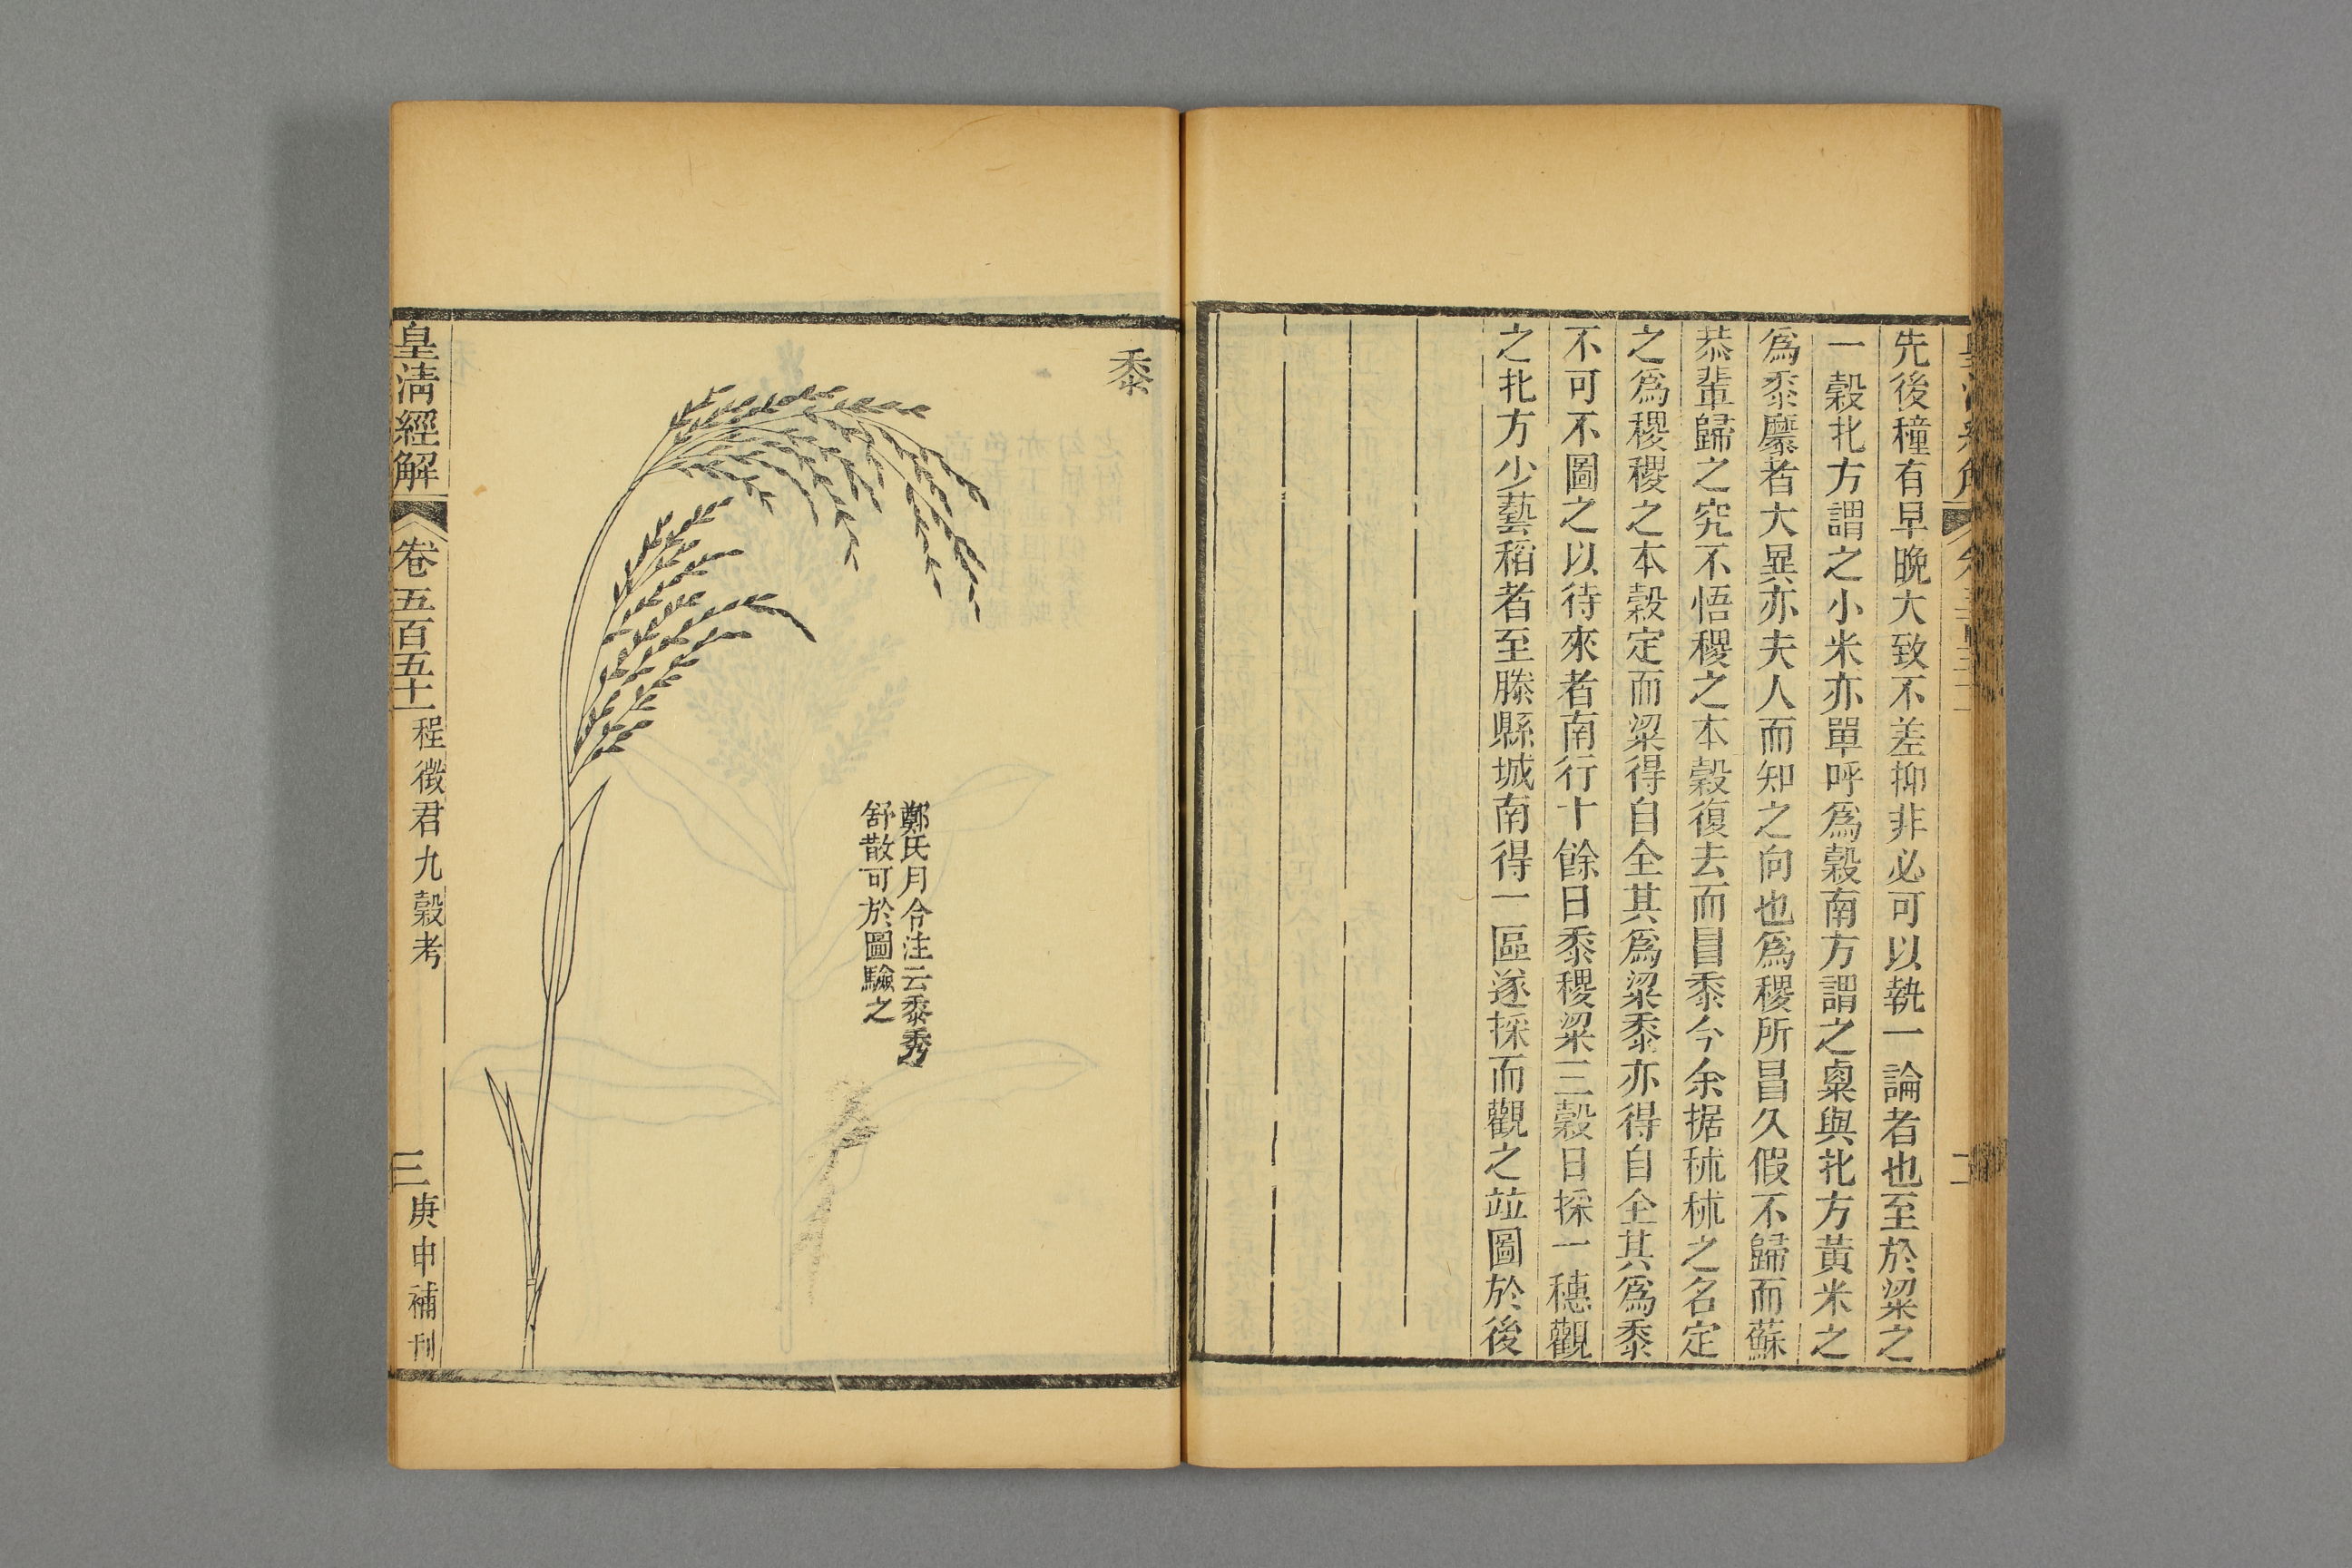 先後種有早晚大致不差抑非必可以執一論者也至於粱之
一穀北方謂之小米亦單呼爲穀南方謂之粟與北方黃米之
爲黍穈者大異亦夫人而知之向也爲稷所冒久假不歸而蘇
恭輩歸之究不悟稷之本穀復去而冒黍今余据秫秫之名定
之爲稷稷之本穀定而粱得自全其爲粱黍亦得自全其爲黍
不可不圖之以待來者南行十餘日黍稷粱三穀日採一穗觀
之北方少藝稻者至滕縣城南得一區遂採而觀之竝圖於後
黍
鄭氏月令注云黍秀
舒散可於圖驗之
皇淸經解
卷五百五十一
程徵君九穀考
三
庚申補刊